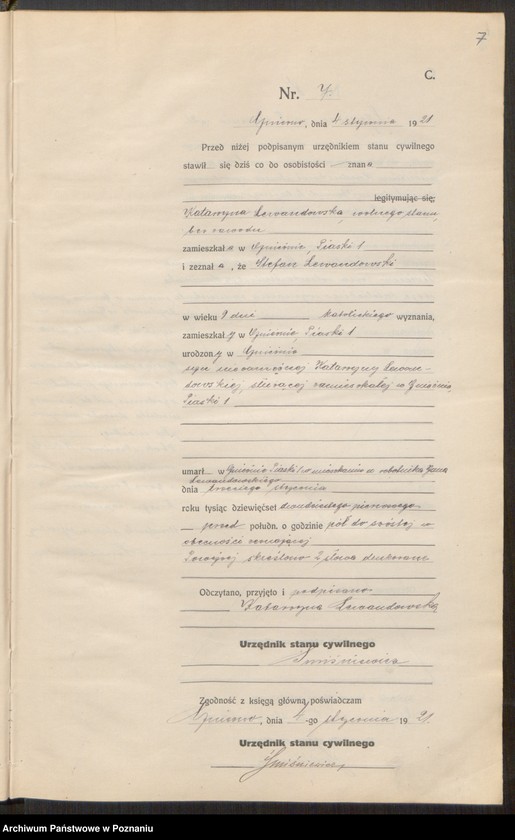 7
C.
Nr. 7.
Gniezno, dnia 4 stycznia 1921
Przed niżej podpisanym urzędnikiem stanu cywilnego
stawił się dziś co do osobistości znana
legitymując się,
Katarzyna Lewandowska, wolnego stanu,
bez zawodu
zamieszkała w Gnieźnie, Piaski 1
i zeznała, że Stefan Lewandowski
w wieku 9 dni katolickiego wyznania,
zamieszkały w Gnieźnie, Piaski 1
urodzony w Gnieźnie
syn niezamężnej Katarzyny Lewan-
dowskiej, zamieszkałej w Gnieźnie,
Piaski 1
umarł w Gnieźnie Piaski 1 w mieszkaniu robotnika
Lewandowskiego
dnia trzeciego stycznia
roku tysiąc dziewięćset dwudziestego pierwszego
przed połudn. o godzinie pół do szóstej w
obecności zeznającej
Powyżej skreślono 2 słowa drukowane
Odczytano, przyjęto i podpisano
Katarzyna Lewandowska
Urzędnik stanu cywilnego
Zgodność z księgą główną poświadczam
Gniezno, dnia 4-go stycznia 1921.
Urzędnik stanu cywilnego
Archiwum Państwowe w Poznaniu